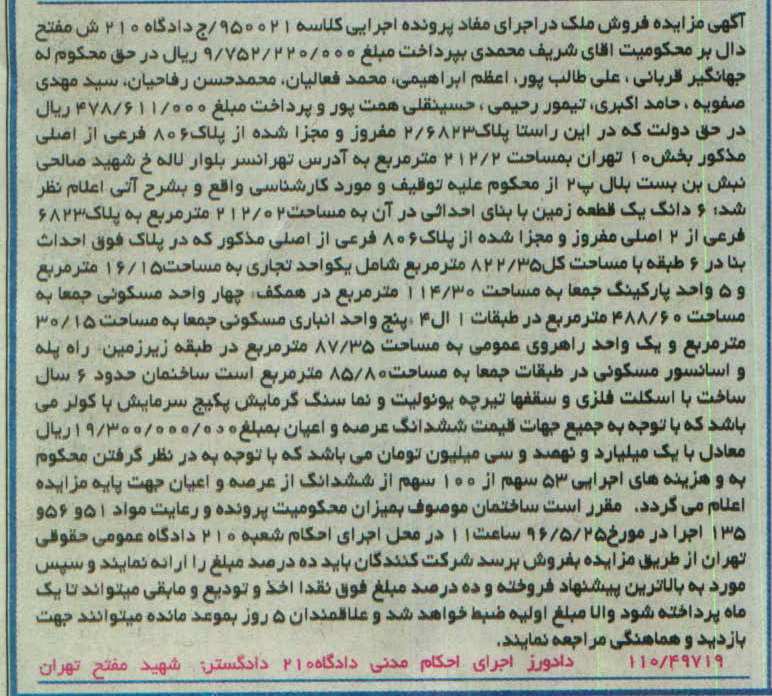 آگهی مزایده فروش ملک در اجرای مفاد پرونده اجرایی کلاسه ۹۵۰۰۲۱/ج دادگاه ۲۱۰ ش مفتح
دال بر محکومیت اقای شریف محمدی بپرداخت مبلغ ۹/۷۵۲/۲۲۰/۰۰۰ ریال در حق محکوم له
جهانگیر قربانی ، علی طالب پور، اعظم ابراهیمی، محمد فعالیان، محمدحسن رفاحیان، سید مهدی
صفویه ، حامد اکبری، تیمور رحیمی ، حسینقلی همت پور و پرداخت مبلغ ۴۷۸/۶۱۱/۰۰۰ ریال
در حق دولت که در این راستا پلاک۲/۶۸۲۳ مفروز و مجزا شده از پلاک۸۰۶ فرعی از اصلی
مذکور بخش۱۰ تهران بمساحت ۲۱۲/۲ مترمربع به آدرس تهرانسر بلوار لاله خ شهید صالحی
نبش بن بست بلال پ۲ از محکوم علیه توقیف و مورد کارشناسی واقع و بشرح آتی اعلام نظر
شد: ۶ دانگ یک قطعه زمین با بنای احداثی در آن به مساحت۲۱۲/۰۲ مترمربع به پلاک۶۸۲۳
فرعی از ۲ اصلی مفروز و مجزا شده از پلاک۸۰۶ فرعی از اصلی مذکور که در پلاک فوق احداث
بنا در ۶ طبقه با مساحت کل۸۲۲/۳۵ مترمربع شامل یکواحد تجاری به مساحت۱۶/۱۵ مترمربع
و ۵ واحد پارکینگ جمعا به مساحت ۱۱۴/۳۰ مترمربع در همکف، چهار واحد مسکونی جمعا به
مساحت ۴۸۸/۶۰ مترمربع در طبقات ۱ ال۴ ،پنج واحد انباری مسکونی جمعا به مساحت ۳۰/۱۵
مترمربع و یک واحد راهروی عمومی به مساحت ۸۷/۳۵ مترمربع در طبقه زیرزمین، راه پله
و اسانسور مسکونی در طبقات جمعا به مساحت۸۵/۸۰ مترمربع است ساختمان حدود ۶ سال
ساخت با اسکلت فلزی و سقفها تیرچه یونولیت و نما سنگ گرمایش پکیج سرمایش با کولر می
باشد که با توجه به جمیع جهات قیمت ششدانگ عرصه و اعیان بمبلغ۱۹/۳۰۰/۰۰۰/۰۰۰ریال
معادل با یک میلیارد و نهصد و سی میلیون تومان می باشد که با توجه به در نظر گرفتن محکوم
به و هزینه های اجرایی ۵۳ سهم از ۱۰۰ سهم از ششدانگ از عرصه و اعیان جهت پایه مزایده
اعلام می گردد. مقرر است ساختمان موصوف بمیزان محکومیت پرونده و رعایت مواد ۵۱و ۵۶و
۱۳۵ اجرا در مورخ۹۶/۵/۲۵ ساعت۱۱ در محل اجرای احکام شعبه ۲۱۰ دادگاه عمومی حقوقی
تهران از طریق مزایده بفروش برسد شرکت کنندگان باید ده درصد مبلغ را ارائه نمایند و سپس
مورد به بالاترین پیشنهاد فروخته و ده درصد مبلغ فوق نقدا اخذ و تودیع و مابقی میتواند تا یک
ماه پرداخته شود والا مبلغ اولیه ضبط خواهد شد و علاقمندان ۵ روز بموعد مانده میتوانند جهت
بازدید و هماهنگی مراجعه نمایند.
۱۱۰/۴۹۷۱۹ دادورز اجرای احکام مدنی دادگاه۲۱۰ دادگستر: شهید مفتح تهران